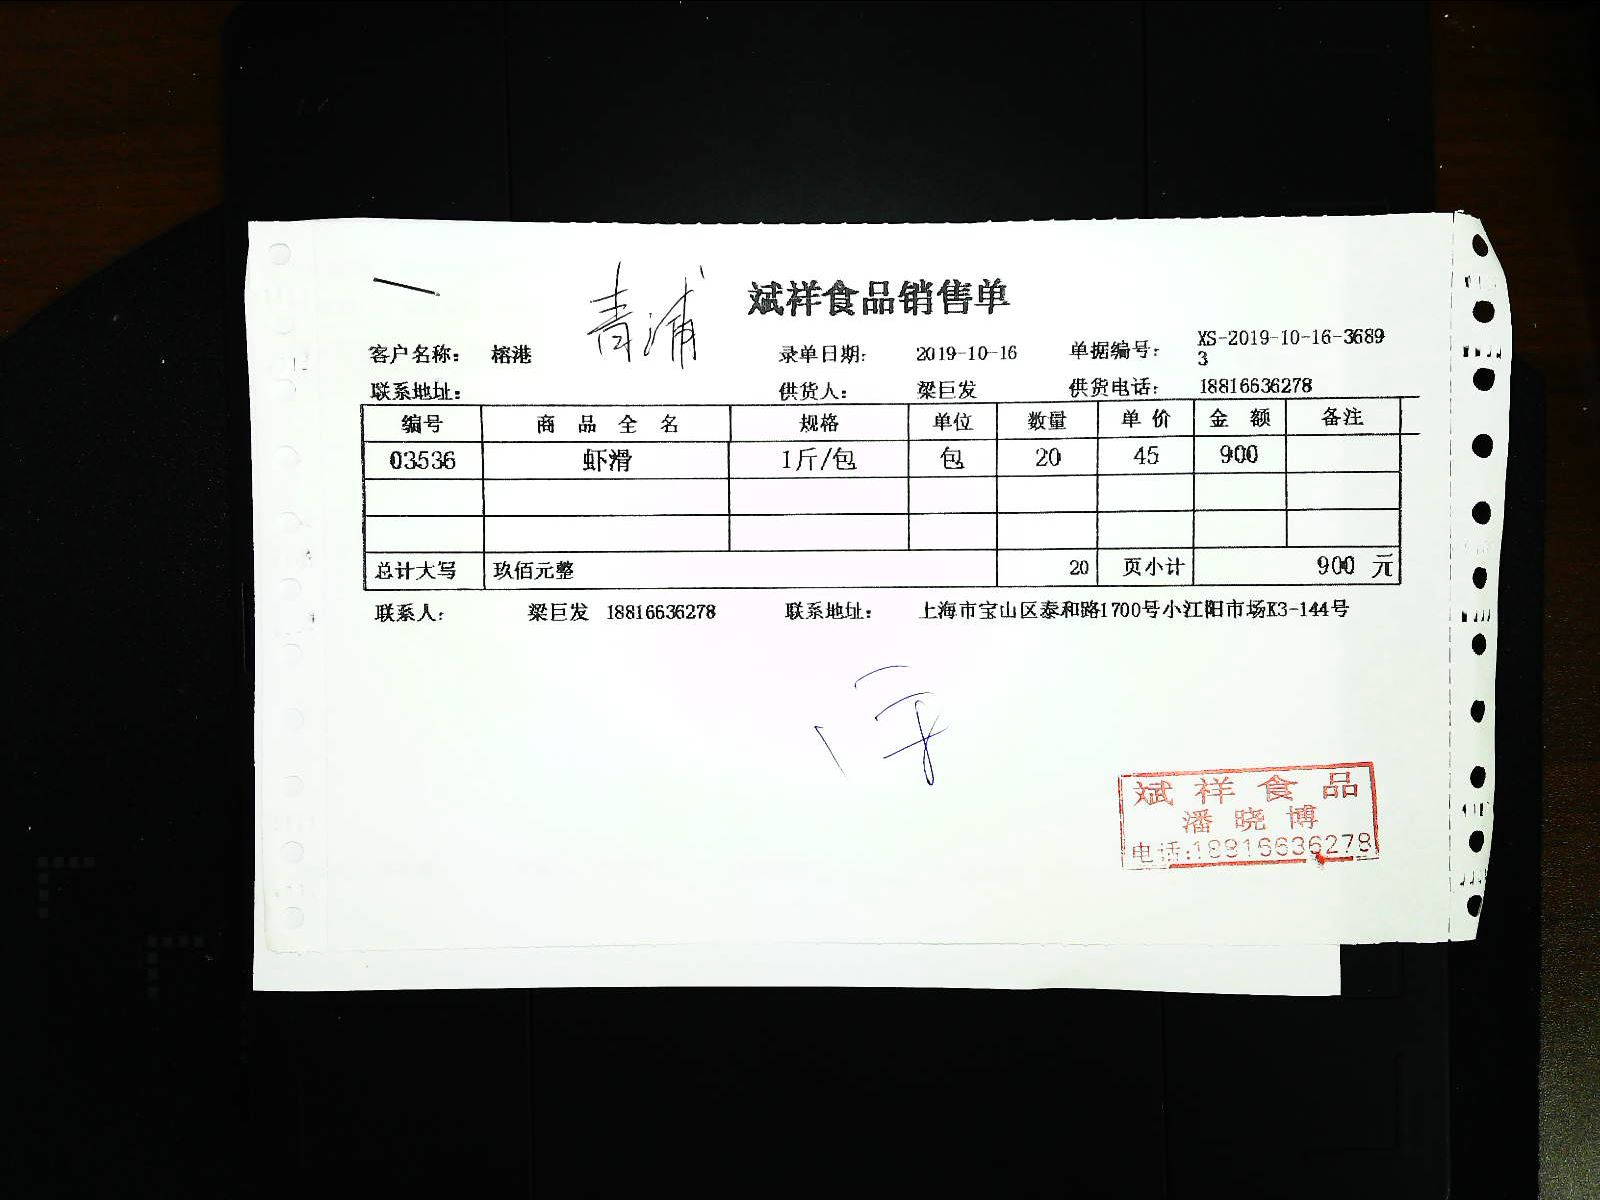 斌祥食品销售单
青浦
客户名称： 榕港 录单日期： 2019-10-16 单据编号： XS-2019-10-16-36893
联系地址： 供货人： 梁巨发 供货电话： 18816636278
编号 商品全名 规格 单位 数量 单价 金额 备注
03536 虾滑 1斤/包 包 20 45 900
总计大写 玖佰元整 20 页小计 900 元
联系人： 梁巨发 18816636278 联系地址： 上海市宝山区泰和路1700号小江阳市场K3-144号
斌祥食品
潘晓博
电话:18816636278